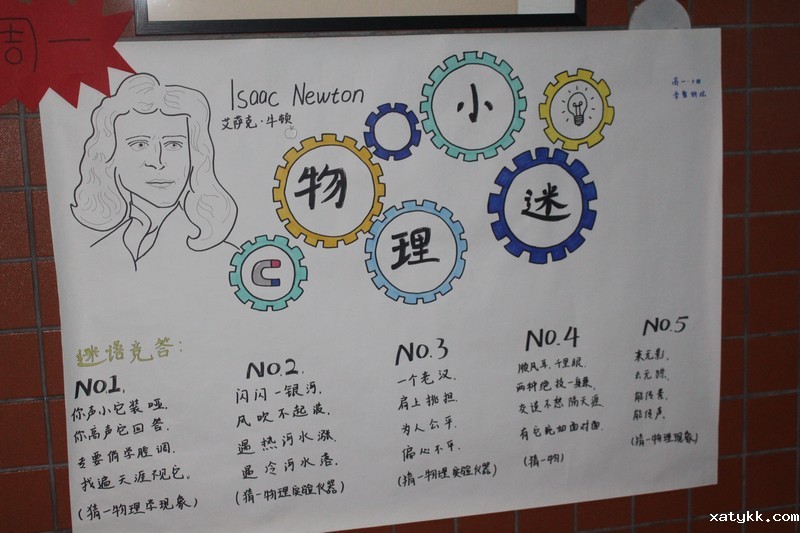 周一
Isaac Newton
艾萨克·牛顿
物理小迷
谜语竞答:
NO.1.
你声小它装哑.
你高声它回答.
专要俏学腔调.
找遍天涯不见它.
(猜一物理学现象)
NO.2.
闪闪一银河.
风吹不起波.
遇热河水涨.
遇冷河水落.
(猜一物理实验仪器)
NO.3
一个老汉.
肩上挑担.
为人公平.
偏心不平.
(猜一物理实验仪器)
NO.4
顺风耳.千里眼.
两种绝技一身兼.
交谈不愁隔天涯.
有它犹如面对面.
(猜一物)
NO.5
来无影.
去无踪.
能传音.
能传声.
(猜一物理现象)
xatykk.com